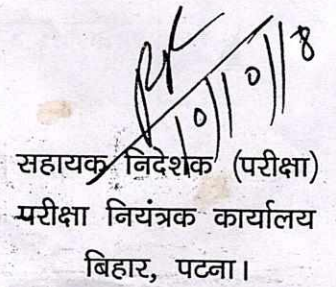 10/10/18
सहायक निदेशक (परीक्षा)
परीक्षा नियंत्रक कार्यालय
बिहार, पटना।